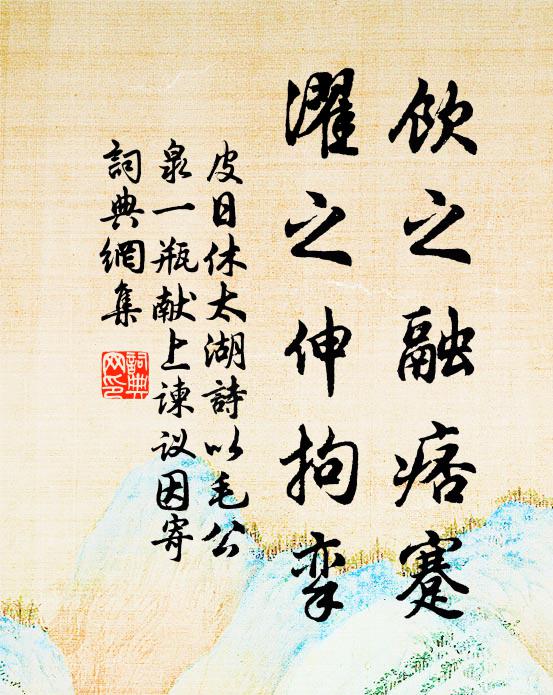 飲之融痞蹇
濯之伸拘挛
皮日休太湖詩以毛公
泉一瓶献上谏议因寄
詞典網集
詞典网印